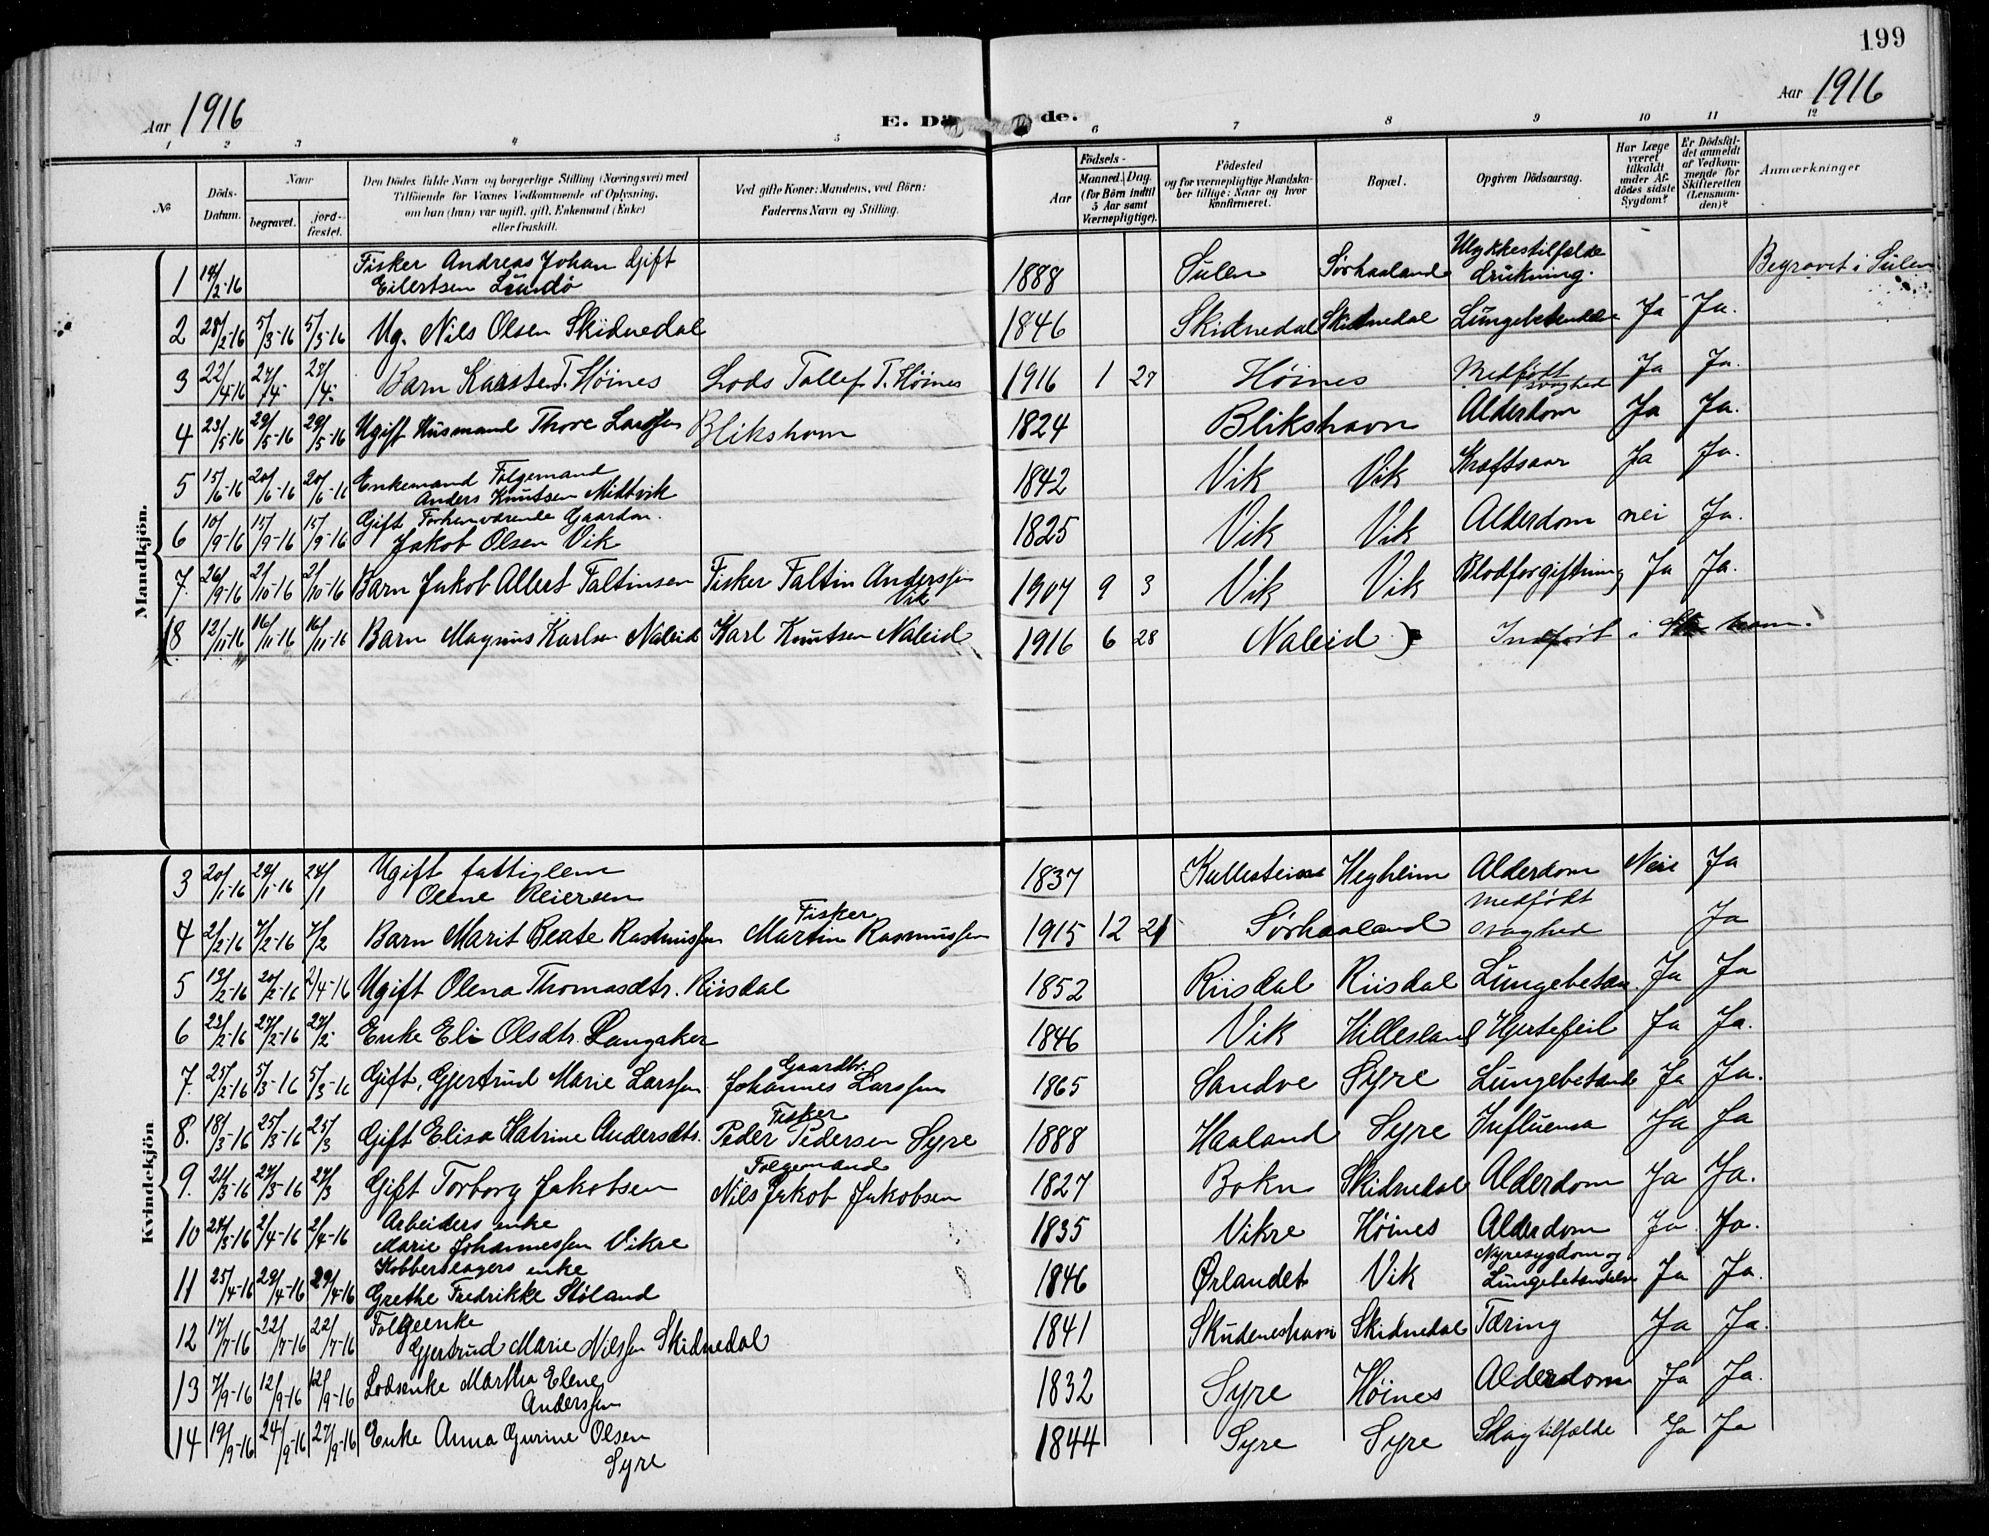 199
Aar 1916
E. Dø de.
Aar 1916
1 2 3 4 5 6 7 8 9 10 11 12
№
Döds-Datum.
Naar
begravet.
jord-fæstet.
Den Dödes fulde Navn og borgerlige Stilling (Næringsvei) med
Tilföiende for Voxnes Vedkommende af Oplysning,
om han (hun) var ugift, gift, Enkemand (Enke)
eller fraskilt.
Ved gifte Koner: Mandens, ved Börn:
Faderens Navn og Stilling.
Födsels-
Aar
Maaned. Dag.
(for Börn indtil
5 Aar samt
Værnepligtige).
Födested
og for værnepligtige Mandska-
ber tillige: Naar og hvor
konfirmeret.
Bopæl.
Opgiven Dödsaarsag.
Har Læge
været
tilkaldt
under Af-
dödes sidste
Sygdom?
Er Dödsfal-
det anmeldt
af Vedkom-
mende for
Skifteretten
(Lensman-
den)?
Anmærkninger
Mandkjön.
1 14/2-16 Fisker Andreas Johan Gift Eilertsen Lundö 1888 Sulen Sørhaaland Ulykkestilfælde drukning. Begravet i Sulen
2 28/2-16 5/3-16 5/3-16 Ug. Nils Olsen Skidnedal 1846 Skidnedal Skidnedal Lungebetendelse Ja Ja.
3 22/4-16 27/4- 27/4- Barn Karsten T. Høines Lods Tollef T. Høines 1916 1 27 Høines Medfödt svaghed Ja Ja.
4 23/5-16 29/5-16 29/5-16 Ugift Husmand Thore Larssen Blikshavn 1824 Blikshavn Alderdom Ja Ja.
5 15/6-16 20/6-16 20/6-16 Enkemand Følgemand Anders Knutsen Midtvik 1842 Vik Vik Kræftsaar Ja Ja.
6 10/9-16 15/9-16 15/9-16 Gift Forhenværende Gaardm. Jakob Olsen Vik 1825 Vik Vik Alderdom nei Ja.
7. 26/9-16 2/10-16 2/10-16 Barn Jakob Albert Faltinsen Fisker Faltin Anderssen Vik 1907 9 3 Vik Vik Blodforgiftning Ja Ja.
(8 12/11-16 16/11-16 16/11-16 Barn Magnus Karlsen Naleid Karl Knutsen Naleid 1916 6 28 Naleid ) Indført i havn.
Kvindekjön
3 20/1-16 24/1-16 24/1 Ugift fattiglem Oline Reiersen 1837 Kallesteinen Hegheim Alderdom Nei Ja
4 2/2-16 7/2-16 7/2 Barn Marit Beate Rasmussen Fisker Martin Rasmussen 1915 12 21 Sørhaaland medfödt svaghed Ja
5 13/2-16 20/2-16 2/4-16 Ugift Olena Thomasdtr. Riisdal 1852 Riisdal Riisdal Lungebetæn Ja Ja
6 23/2-16 27/2-16 27/2- Enke Eli Olsdtr. Langaker 1846 Vik Hillesland Hjertefeil Ja Ja.
7. 25/2-16 5/3-16 5/3-16 Gift, Gjertrud Marie Larssen Gaardbr. Johannes Larssen 1865 Sandve Syre Lungebetænd Ja Ja.
8. 18/3-16 25/3-16 25/3 Gift Elisa Katrine Andersdtr. Fisker Peder Pedersen Syre 1888 Haaland Syre Influensa Ja Ja
9. 21/3-16 27/3-16 27/3 Gift Torborg Jakobsen Følgemand Nils Jakob Jakobsen 1827 Bokn Skidnedal Alderdom Ja Ja.
10 24/3-16 2/4-16 2/4-16 Arbeiders enke Marie Johannessen Vikre 1835 Vikre Høines Alderdom Ja Ja.
11 25/4-16 29/4-16 29/4-16 Kobberslagers enke Grethe Fredrikke Støland 1846 Ørlandet Vik Nyresygdom og Lungebetændelse Ja Ja.
12 17/7-16 22/7-16 22/7-16 Følgeenke Gjertrud Marie Nilssen Skidnedal 1841 Skudeneshavn Skidnedal Tæring Ja Ja.
13 7/9-16 12/9-16 12/9-16 Lodsenke Martha Elene Anderssen 1832 Syre Høines Alderdom Ja Ja.
14 19/9-16 24/9-16 27/9-16 Enke Anna Gurine Olsen Syre 1844 Syre Syre Slagtilfælde Ja Ja